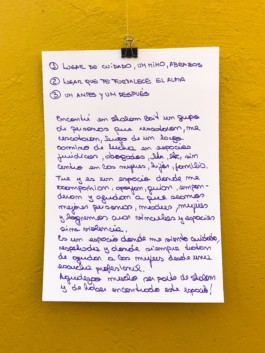 ① LUGAR DE CUIDADO, UN MIMO, ABRAZOS
② LUGAR QUE TE FORTALECE EL ALMA
③ UN ANTES y UN DESPUÉS
Encontré en shalom bait un grupo
de personas que rescataron, me
rescataron, luego de un largo
camino de lucha en espacios
jurídicos, abogados, etc, sin
centro en las mujeres, hijos, familia.
Fue y es un espacio donde me
acompañan, apoyan, guían, empo-
deran y ayudan a que seamos
mejores personas, madres, mujeres
y logremos vínculos y espacios
sin violencia.
Es un espacio donde me siento cuidada,
respetada y donde siempre tratan
de ayudar a las mujeres desde una
escucha profesional.
Agradezco mucho ser parte de shalom
y de haber encontrado este espacio!